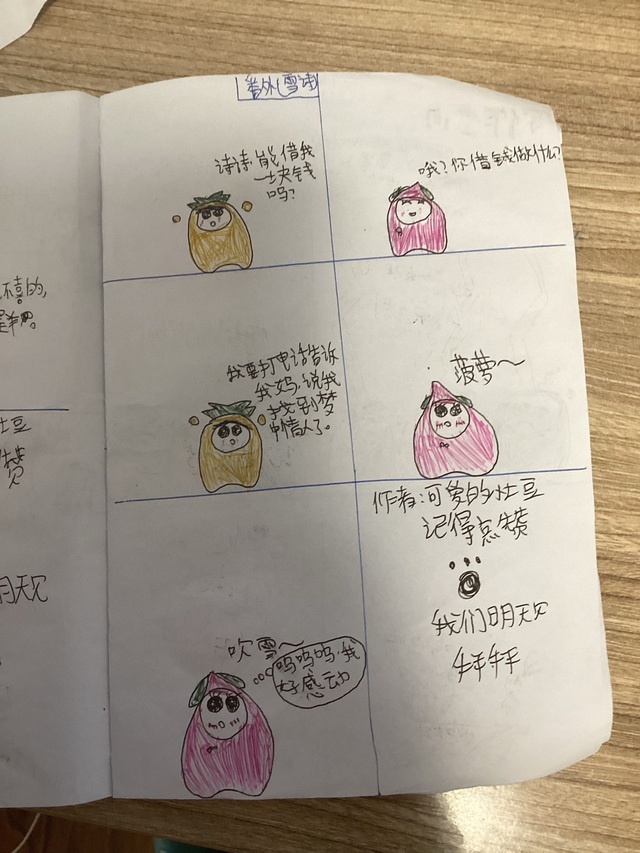 番外(雪诗)
诗诗,能借我
一块钱
吗?
哦?你借钱做什么?
我要打电话告诉
我妈,说我
找到梦
中情人了。
菠萝~
吹雪~
呜呜呜,我
好感动
作者:可爱的土豆
记得点赞
我们明天见
拜拜
土豆
赞